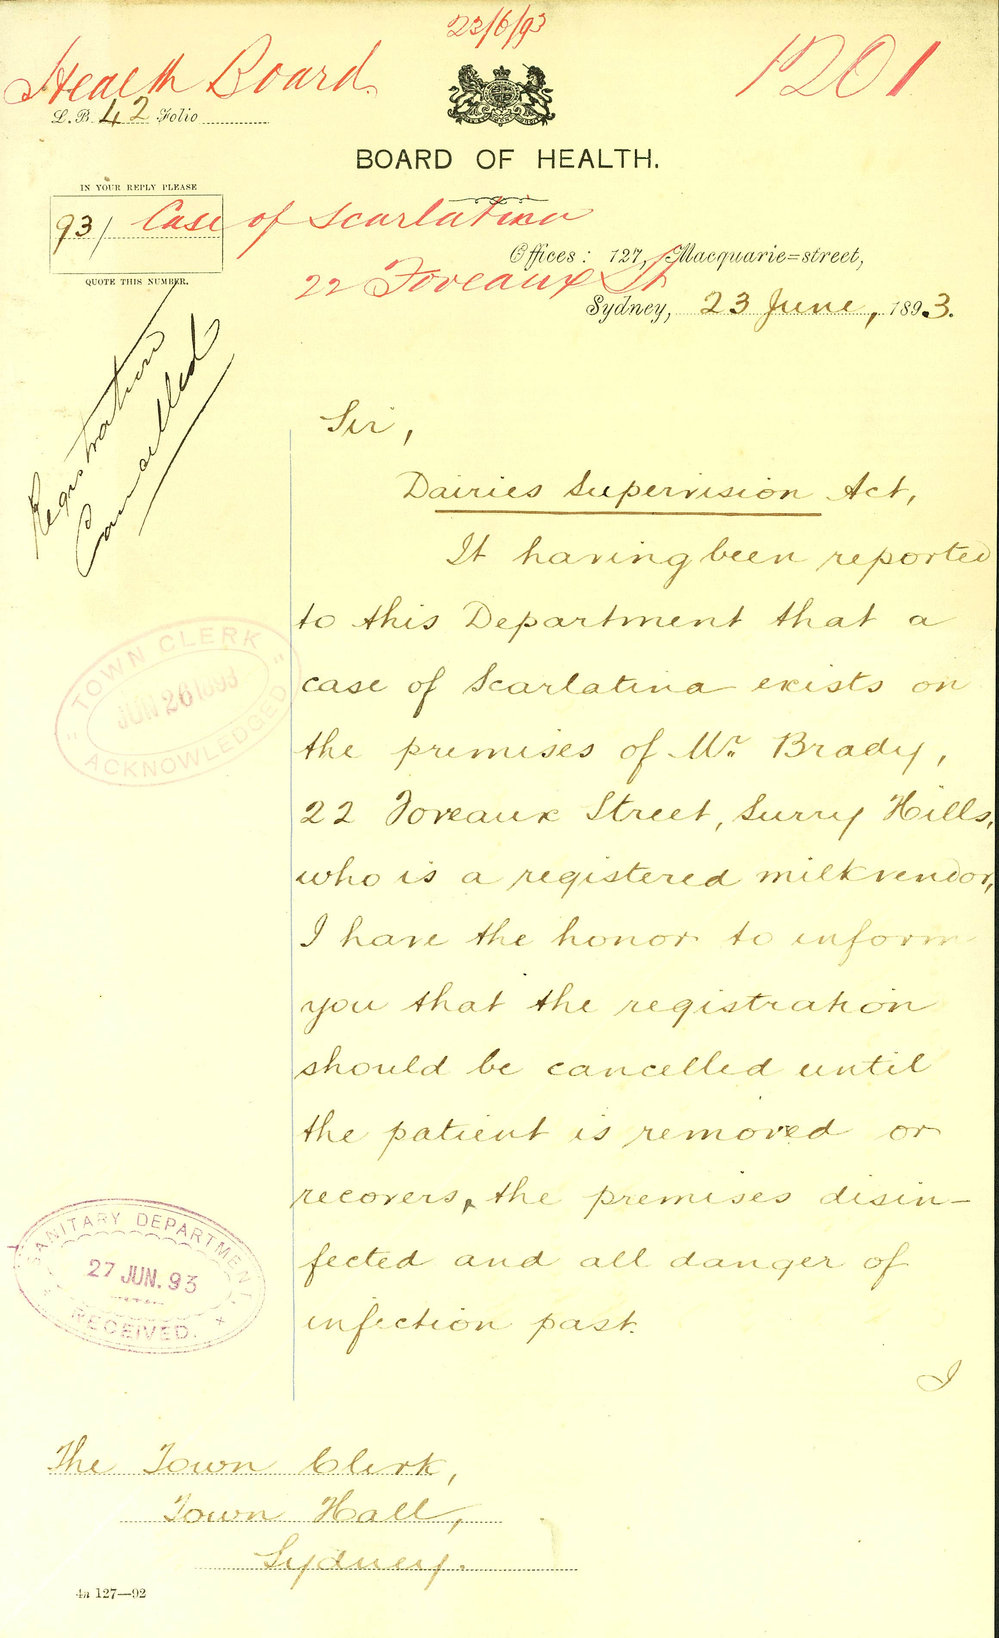 23/6/93
Health Board
1201
L.B. 42 Folio
BOARD OF HEALTH.
IN YOUR REPLY PLEASE
93/
QUOTE THIS NUMBER.
Case of Scarlatina
22 Foveaux St
Offices: 127, Macquarie=street,
Sydney, 23 June, 1893.
Registration
Cancelled
Sir,
Dairies Supervision Act,
It having been reported
to this Department that a
case of Scarlatina exists on
the premises of Mr. Brady,
22 Foveaux Street, Surry Hills,
who is a registered milkvendor,
I have the honor to inform
you that the registration
should be cancelled until
the patient is removed or
recovers, the premises disin-
fected and all danger of
infection past.
I
"TOWN CLERK"
JUN 26 1893
ACKNOWLEDGED
SANITARY DEPARTMENT
27 JUN. 93
RECEIVED.
The Town Clerk,
Town Hall,
Sydney.
4a 127—92